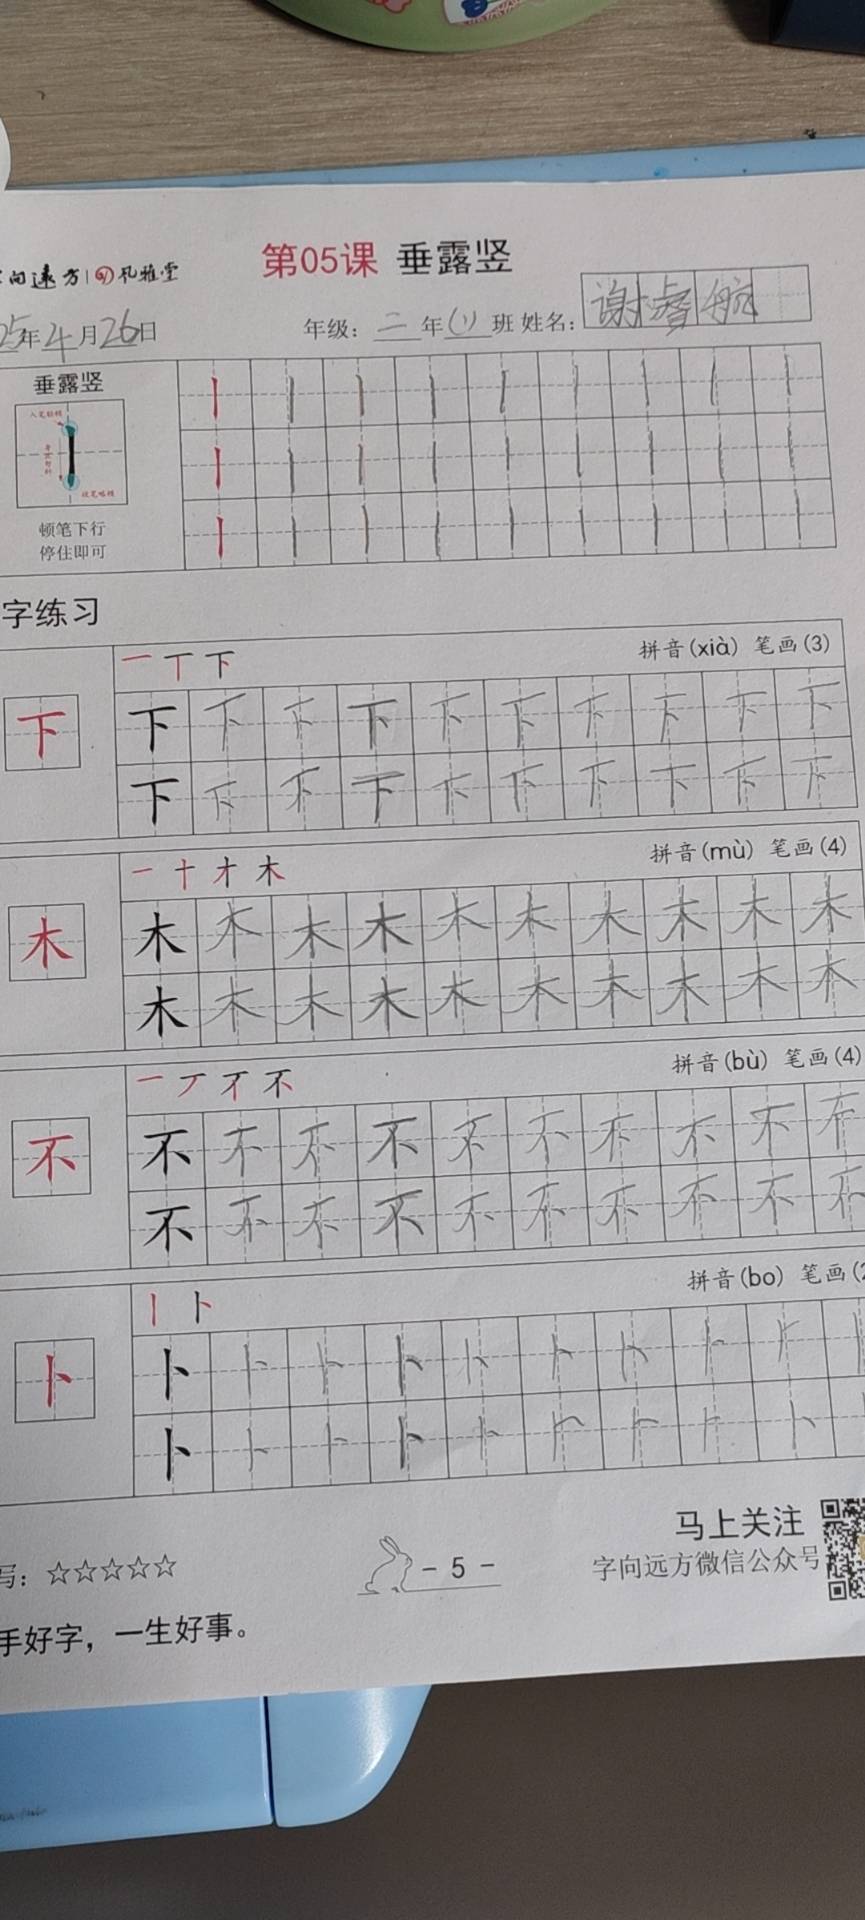 字向远方|孔雅堂
第05课 垂露竖
25年4月26日 年级：二年(1)班 姓名：谢睿航
垂露竖
入笔轻顿
收笔略顿
顿笔下行
停住即可
字练习
一丅下 拼音(xià) 笔画(3)
下 下下下下下下下下下下
下下下下下下下下下下
一十才木 拼音(mù) 笔画(4)
木 木木木木木木木木木木
木木木木木木木木木木
一丆不不 拼音(bù) 笔画(4)
不 不不不不不不不不不不
不不不不不不不不不不
丨卜 拼音(bo) 笔画(2
卜 卜卜卜卜卜卜卜卜卜
卜卜卜卜卜卜卜卜卜
写：☆☆☆☆☆
- 5 -
马上关注
字向远方微信公众号
手好字，一生好事。